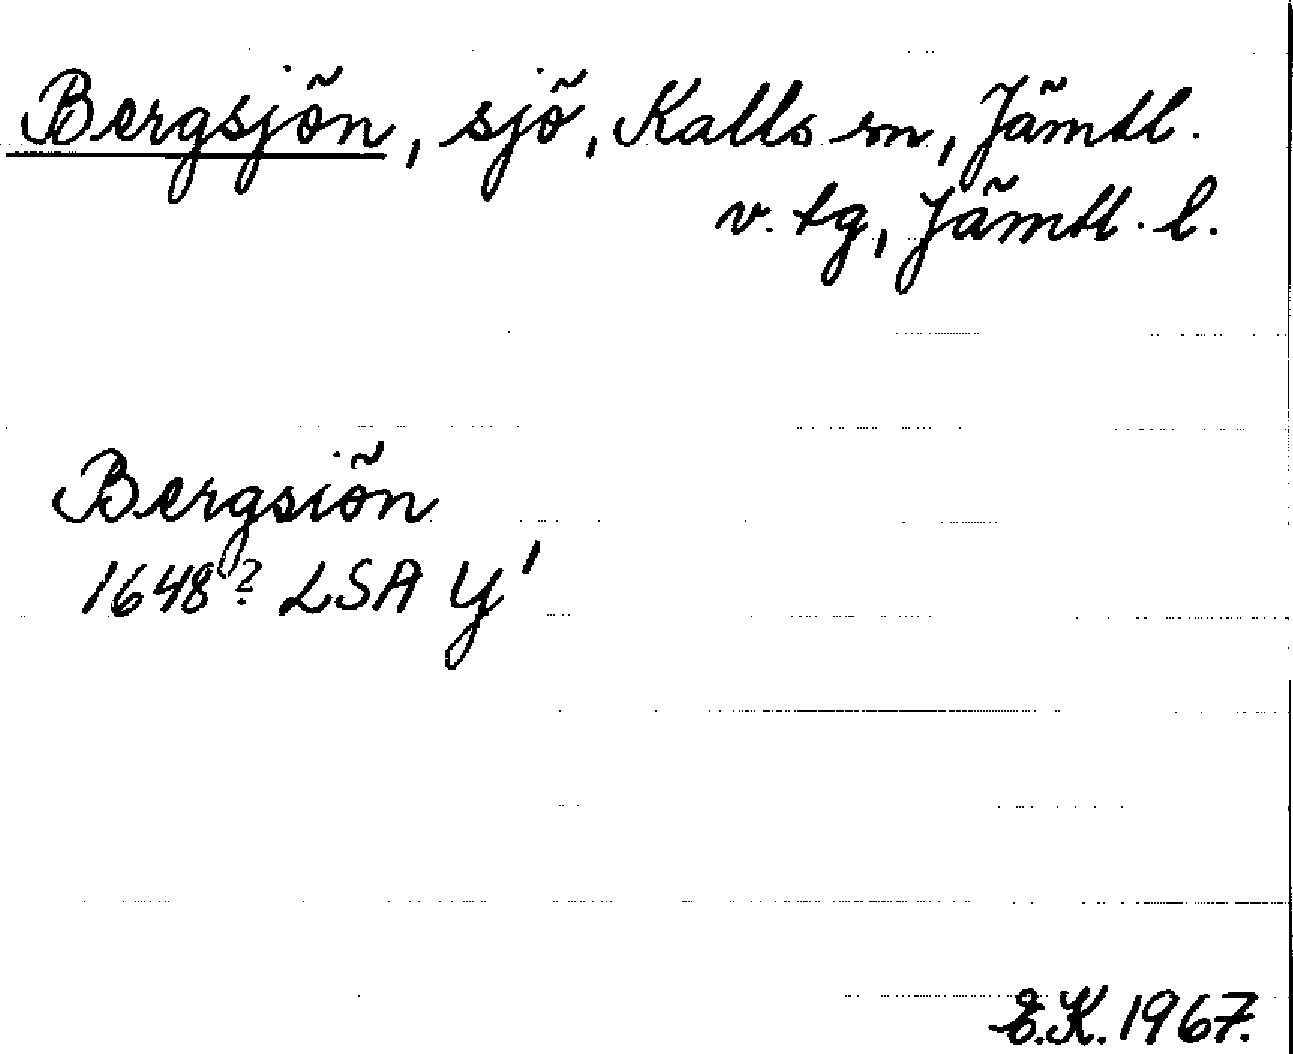 Bergsjön, sjö, Kalls sn, Jämtl.
v. tg, Jämtl. l.
Bergsiön
1648? LSA Y'
E.K. 1967.